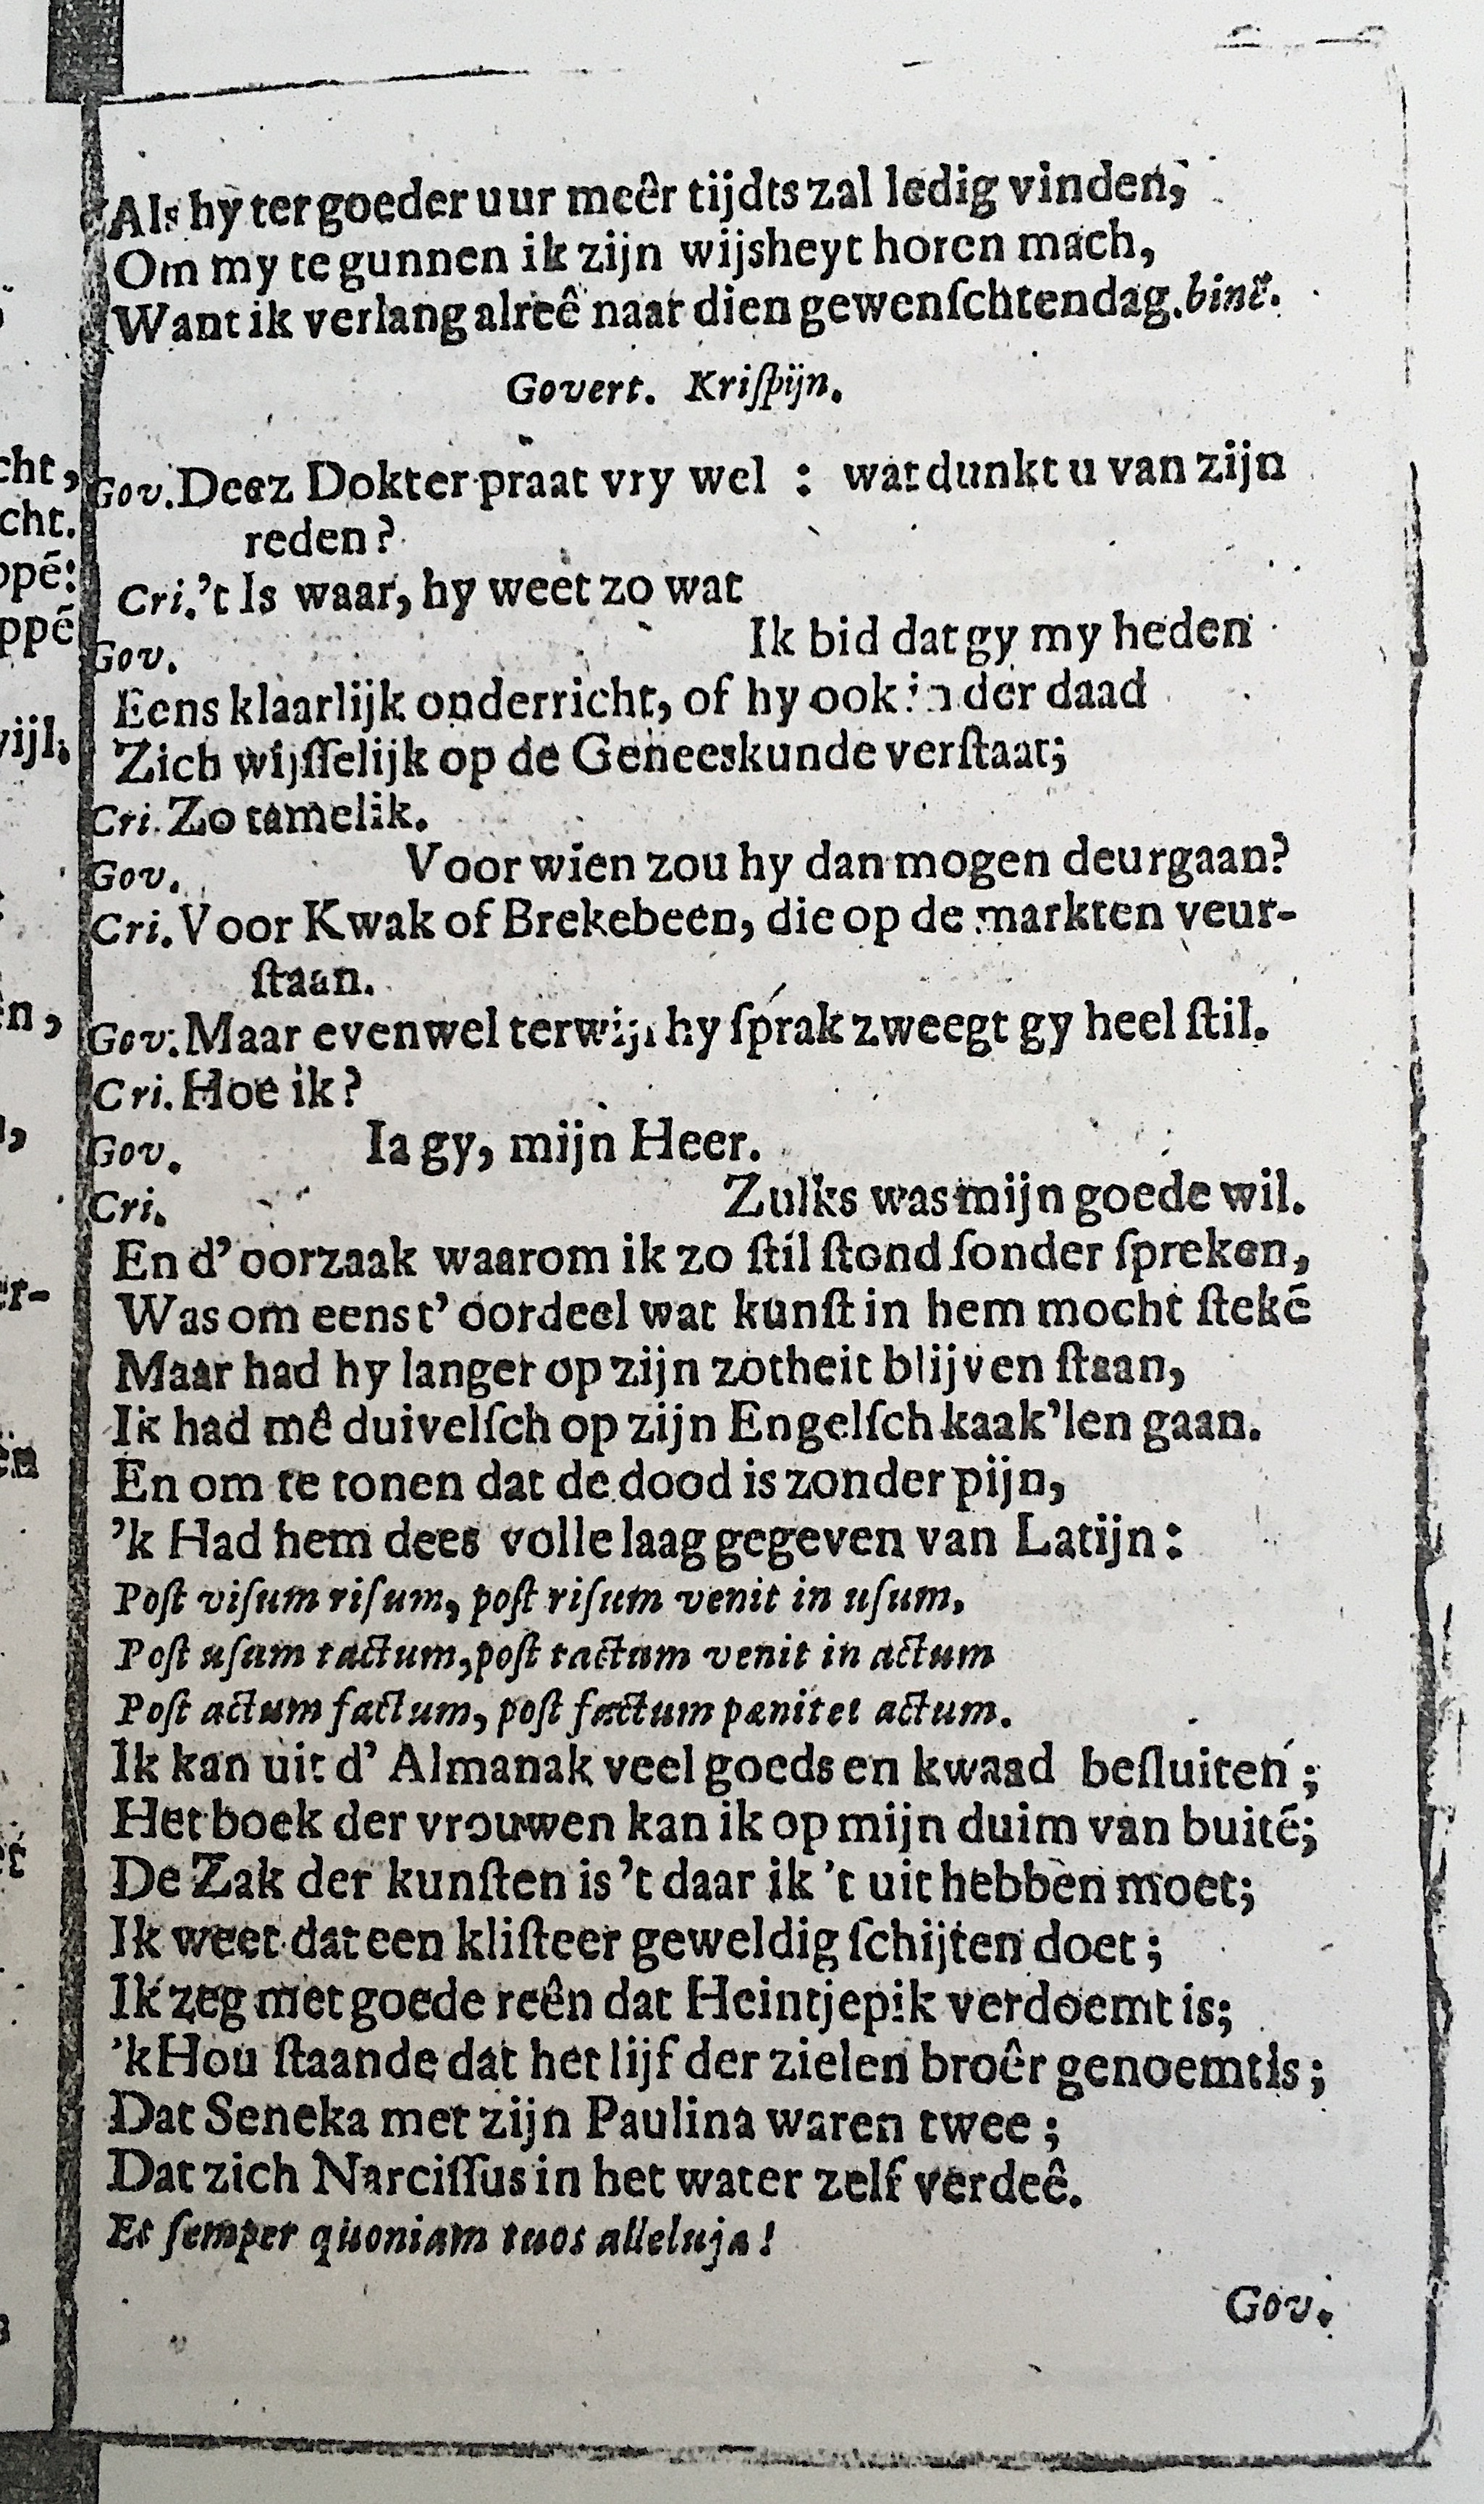 Als hy ter goeder uur meêr tijdts zal ledig vinden,
Om my te gunnen ik zijn wijsheyt horen mach,
Want ik verlang alreê naar dien gewenſchten dag. binē.
Govert. Kriſpijn.
Gov. Deez Dokter praat vry wel : wat dunkt u van zijn
reden?
Cri. 't Is waar, hy weet zo wat
Gov. Ik bid dat gy my heden
Eens klaarlijk onderricht, of hy ook in der daad
Zich wijſſelijk op de Geneeskunde verſtaat;
Cri. Zo tamelik.
Gov. Voor wien zou hy dan mogen deurgaan?
Cri. Voor Kwak of Brekebeen, die op de markten veur-
ſtaan.
Gov. Maar evenwel terwijl hy ſprak zweegt gy heel ſtil.
Cri. Hoe ik?
Gov. Ia gy, mijn Heer.
Cri. Zulks was mijn goede wil.
En d' oorzaak waarom ik zo ſtil ſtond ſonder ſpreken,
Was om eens t' oordeel wat kunſt in hem mocht ſtekē
Maar had hy langer op zijn zotheit blijven ſtaan,
Ik had mê duivelſch op zijn Engelſch kaak'len gaan.
En om te tonen dat de dood is zonder pijn,
'k Had hem dees volle laag gegeven van Latijn:
Poſt viſum riſum, poſt riſum venit in uſum,
Poſt uſum tactum, poſt tactum venit in actum
Poſt actum factum, poſt factum pænitet actum.
Ik kan uit d' Almanak veel goeds en kwaad beſluiten;
Het boek der vrouwen kan ik op mijn duim van buitē;
De Zak der kunſten is 't daar ik 't uit hebben moet;
Ik weet dat een kliſteer geweldig ſchijten doet;
Ik zeg met goede reên dat Heintjepik verdoemt is;
'k Hou ſtaande dat het lijf der zielen broêr genoemt is;
Dat Seneka met zijn Paulina waren twee;
Dat zich Narciſſus in het water zelf verdeê.
Et ſemper quoniam tuos alleluja!
Gov.